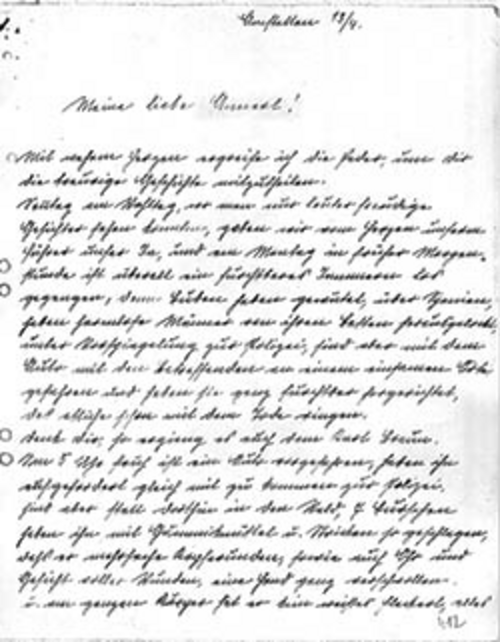 Anstetten 13/4.
Meine liebe Annerl!
Mit wehem Herzen ergreife ich die Feder, um dir
die traurige Geschichte mitzutheilen.
Sonntag am Wahltag, wo man nur lauter freudige
Gesichter sehen konnte, gaben wir vom Herzen unserm
Führer unser Ja, und am Montag in früher Morgen-
stunde ist überall ein furchtbares Jammern los
gegangen, denn Buben haben gewütet, wie
haben harmlose Männer von ihren Betten herausgelockt,
unter Vorspiegelung zur Polizei, sind aber mit dem
Auto mit den betreffenden an einem einsamen Ort
gefahren und haben sie ganz furchtbar hergerichtet,
das etliche schon mit dem Tode ringen.
Denk dir, so ergieng es auch dem Karl Braun.
Um 5 Uhr früh ist ein Auto vorgefahren, haben ihn
aufgefordert gleich mit zu kommen zur Polizei.
sind aber statt dorthin in den Wald. 7 Burschen
haben ihn mit Gummiknüttel u. Stricken so geschlagen,
daß er mehrfache Kopfwunden, sowie auch Ohr und
Gesicht voller Wunden, eine Hand ganz verschwollen.
u. am ganzen Körper hat er kein weißes Fleckerl, alles